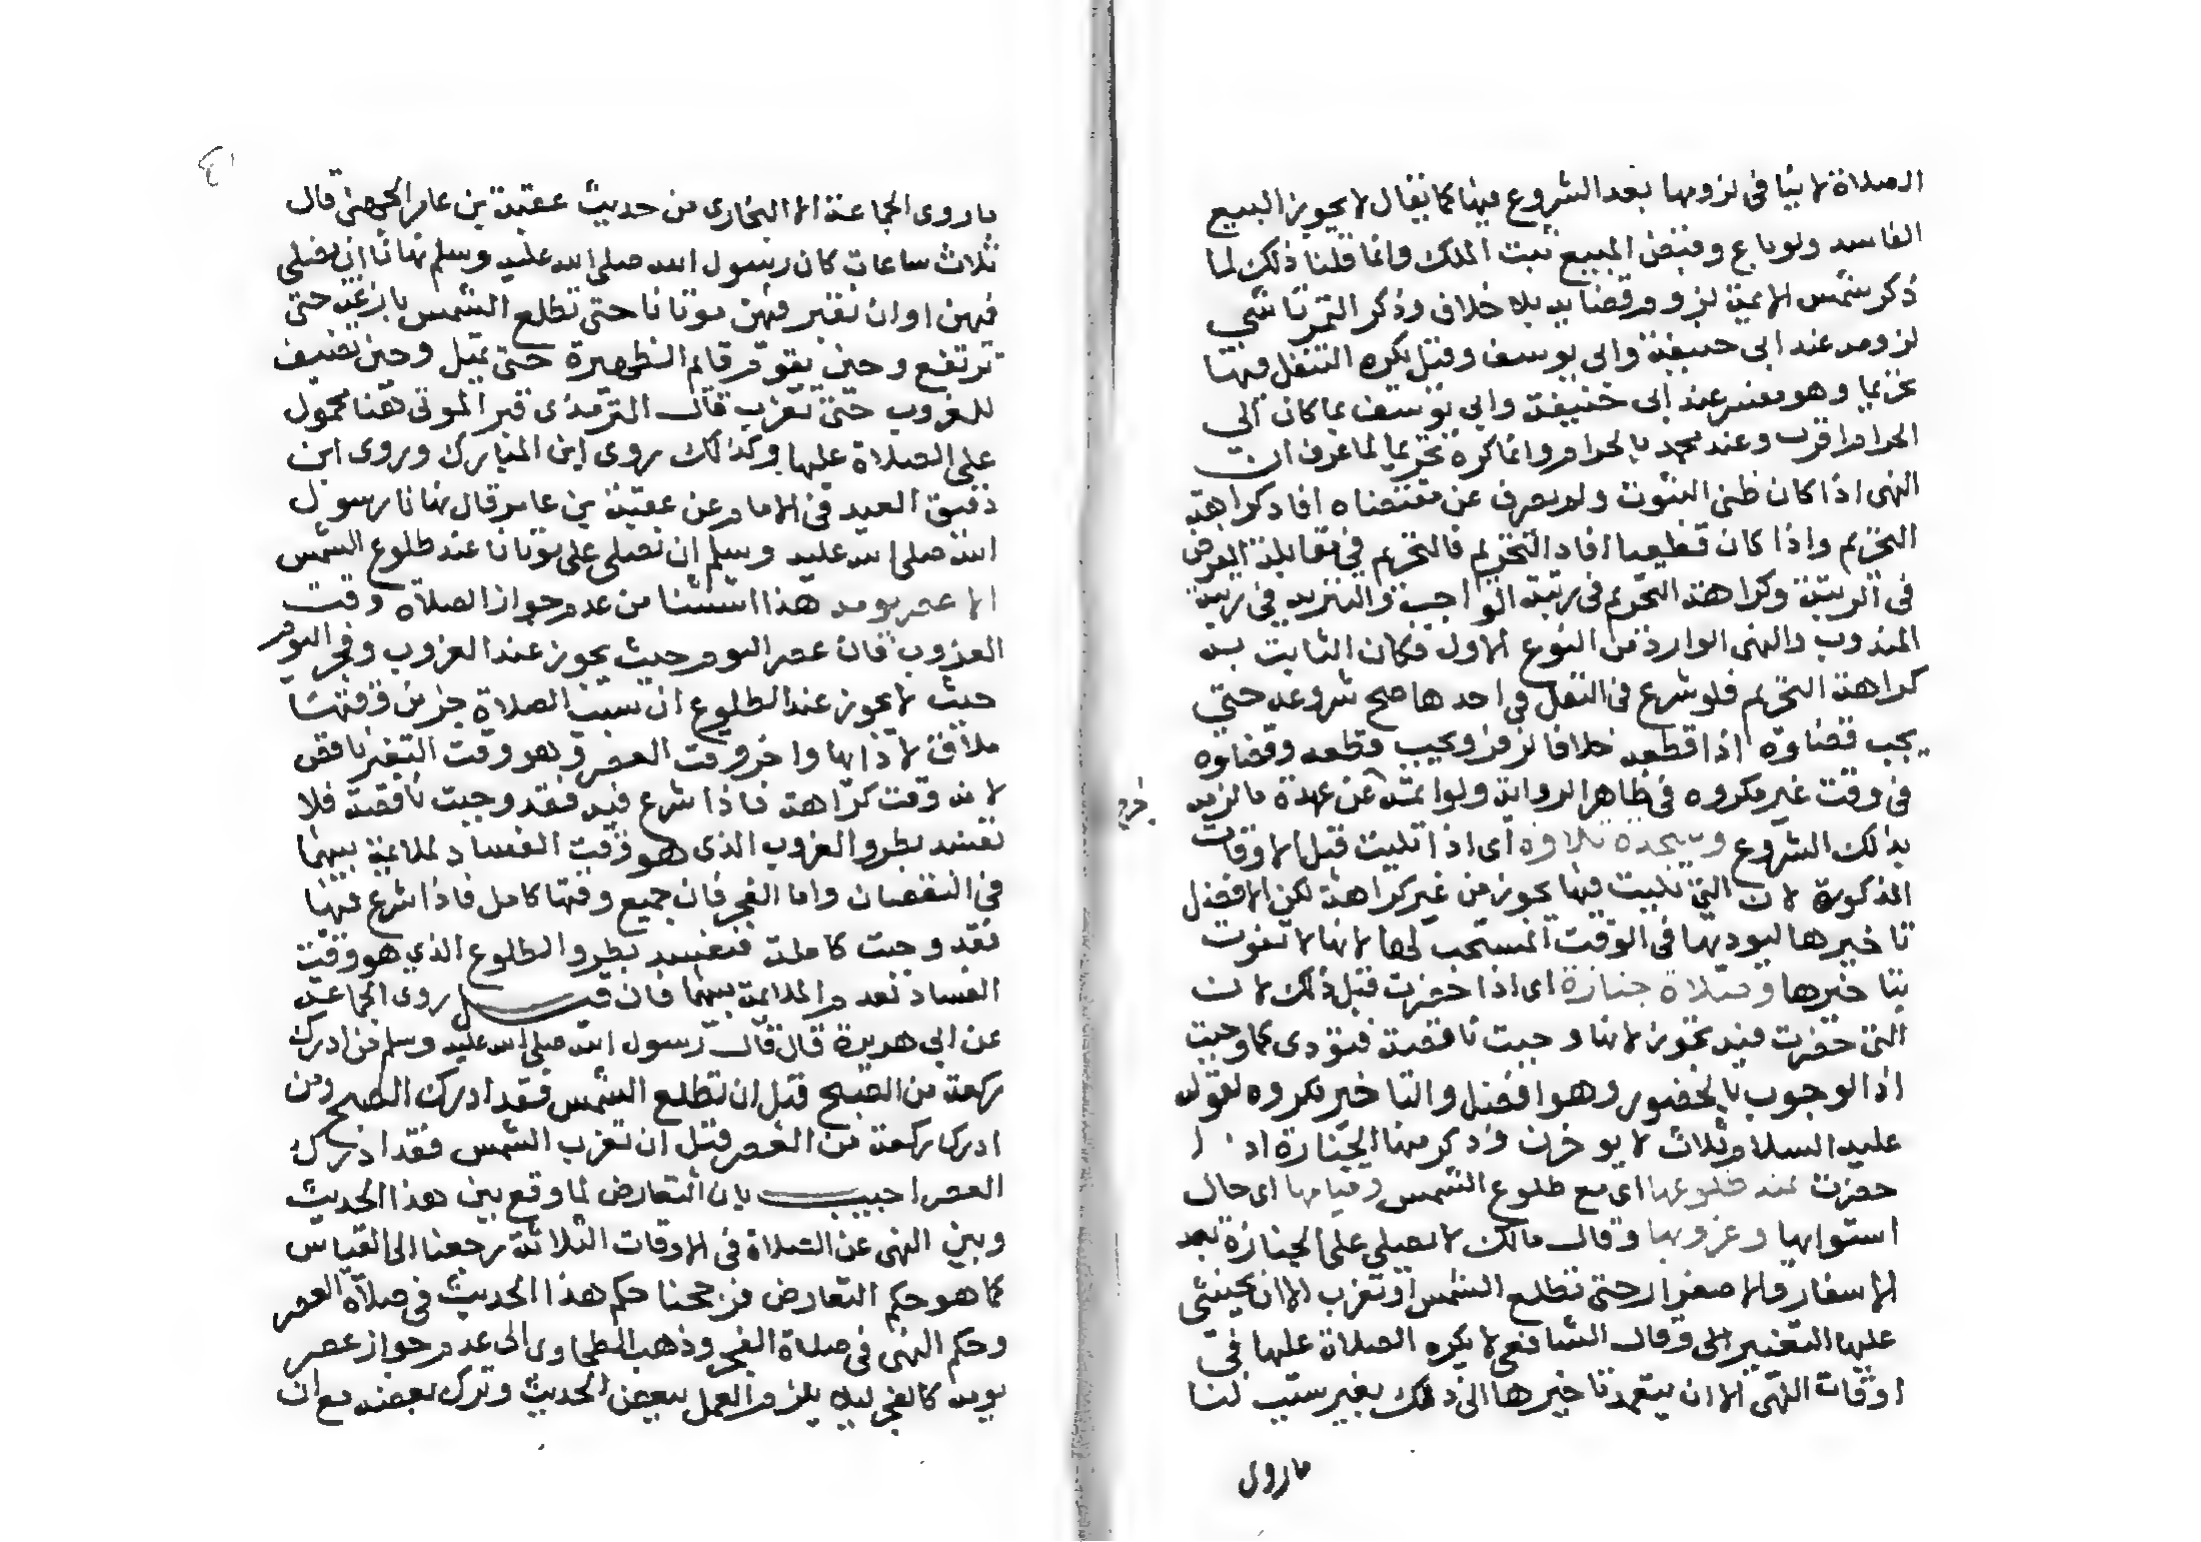 الصلاة لا ينافي لزومها بعد الشروع فيها كما يقال لا يجوز البيع
الفاسد ولو باع وقبض المبيع ثبت الملك وانما قلنا ذلك لما
ذكر شمس الائمة لزوم قضايه بلا خلاف وذكر التمرتاشي
لزومه عند ابي حنيفة وابي يوسف وقيل يكره التنفل فيها
تحريما وهو مفسر عند ابي حنيفة وابي يوسف بما كان الي
الحرام اقرب وعند محمد بالحرام وانما كره تحريما لما عرف ان
النهي اذا كان ظني الثبوت ولم يصرف عن مقتضاه افاد كراهة
التحريم واذا كان قطعيا افاد التحريم فالتحريم في مقابلة الفرض
في الرتبة وكراهة التحريم في رتبة الواجب والتنزيه في رتبة
المندوب والنهي الوارد من النوع الاول فكان الثابت به
كراهة التحريم فلو شرع في النفل في احدها صح شروعه حتي
يجب قضاوه اذا قطعه خلافا لزفر ويجب قطعه وقضاوه
في وقت غير مكروه في ظاهر الرواية ولو اتمه عن عهدة ما لزمه
بذلك الشروع وسجدة تلاوة اي اذا تليت قبل الاوقات
المذكورة لان التي تليت فيها يجوز من غير كراهة لكن الافضل
تاخيرها ليوديها في الوقت المستحب لها لانها لا تفوت
بتاخيرها وصلاة جنازة اي اذا حضرت قبل ذلك لان
التي حضرت فيه تجوز لانها وجبت ناقصة فتودي كما وجبت
اذ الوجوب بالحضور وهو افضل والتاخير مكروه لقوله
عليه السلام ثلاث لا يوخرن وذكر منها الجنازة اذا
حضرت عند طلوعها اي مع طلوع الشمس وقيامها اي حال
استوايها وغروبها وقال مالك لا نصلي علي الجنازة بعد
الاسفار والاصفرار حتي تطلع الشمس او تغرب الا ان يخشي
عليها التغيير الي وقال الشافعي لا يكره الصلاة عليها في
اوقات النهي الا ان يتعمد تاخيرها الي ذلك بغير سبب لنا
ما روي
ما روي الجماعة الا البخاري من حديث عقبة بن عامر الجهني قال
ثلاث ساعات كان رسول الله صلي الله عليه وسلم نهانا ان نصلي
فيهن او ان نقبر فيهن موتانا حتي تطلع الشمس بازغة حتي
ترتفع وحين يقوم قائم الظهيرة حتي تميل وحين تضيف
للغروب حتي تغرب قال الترمذي قبر الموتي هنا محمول
علي الصلاة عليها وكذلك روي ابن المبارك وروي ابن
دقيق العيد في الامام عن عقبة بن عامر قال نهانا رسول
الله صلي الله عليه وسلم ان نصلي علي موتانا عند طلوع الشمس
الا عصر يومه هذا استثنا من عدم جواز الصلاة وقت
الغروب فان عصر اليوم حيث يجوز عند الغروب وفجر اليوم
حيث لا يجوز عند الطلوع ان سبب الصلاة جزء من وقتها
ملاق لادايها واخر وقت العصر وهو وقت التغير ناقص
لانه وقت كراهة فاذا شرع فيه فقد وجبت ناقصة فلا
تفسد بطرو الغروب الذي هو وقت الفساد لملايمة بينهما
في النقصان واما الفجر فان جميع وقتها كامل فاذا شرع فيها
فقد وجبت كاملة فتفسد بطرو الطلوع الذي هو وقت
الفساد لعدم الملايمة بينهما فان قيل روي الجماعة
عن ابي هريرة قال قال رسول الله صلي الله عليه وسلم من ادرك
ركعة من الصبح قبل ان تطلع الشمس فقد ادرك الصبح ومن
ادرك ركعة من العصر قبل ان تغرب الشمس فقد ادرك
العصر اجيب بان التعارض لما وقع بين هذا الحديث
وبين النهي عن الصلاة في الاوقات الثلاثة رجعنا الي القياس
كما هو حكم التعارض فرجحنا حكم هذا الحديث في صلاة العصر
وحكم النهي في صلاة الفجر وذهب الطحاوي الي عدم جواز عصر
يومه كالفجر ليلا يلزم العمل ببعض الحديث وترك بعضه مع ان